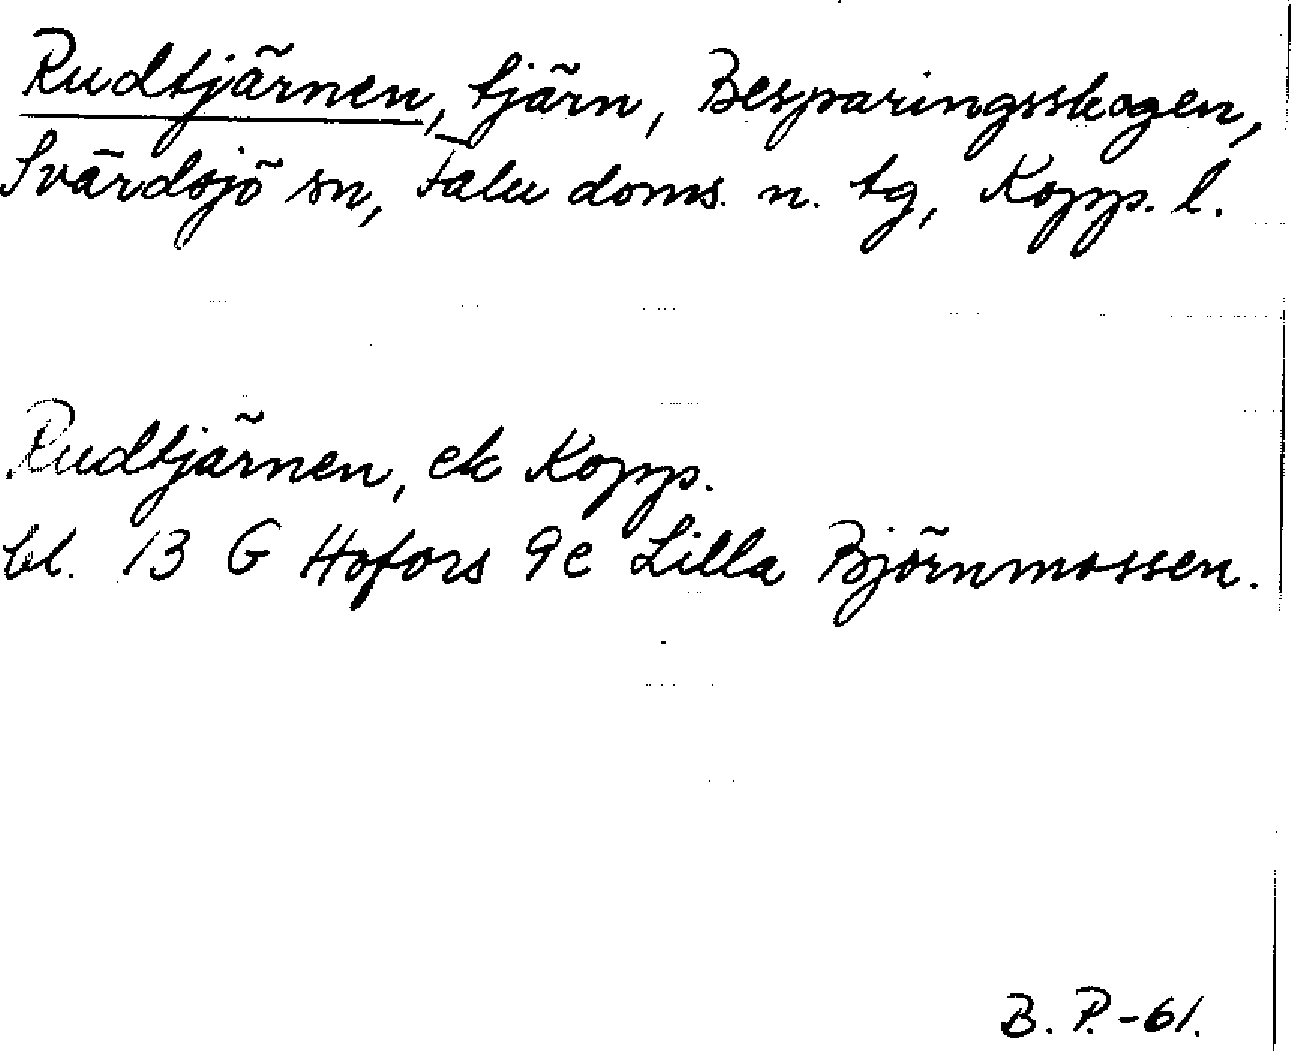 Rudtjärnen, tjärn, Besparingsskogen,
Svärdsjö sn, Falu doms. n. tg, Kopp. l.
Rudtjärnen, ek Kopp.
bl. 13 G Hofors 9e Lilla Björnmossen.
B. P. -61.